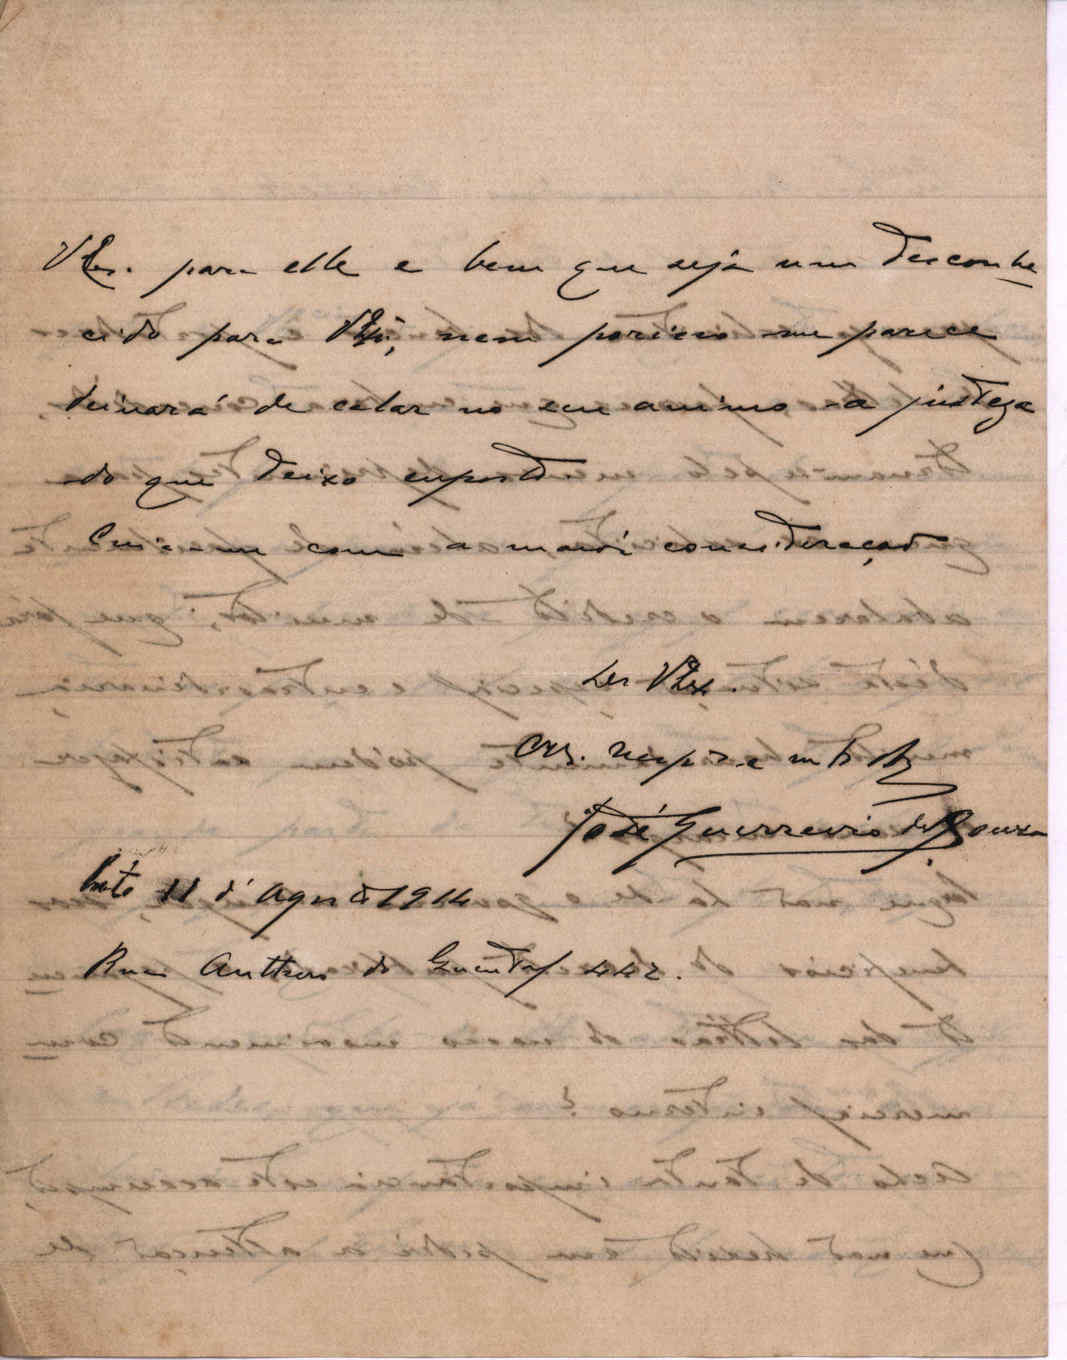 VEx. para elle e bem que seja um desconhe
cido para VEx.ª, nem por isso me parece
deixará de calar no seu animo a justeza
do que deixo exposto
Sou com a maior consideração
De VEx.
José Guerreiro de Souza
Porto 11 d'Agosto 1914
Rua Anthero do Quental 442.